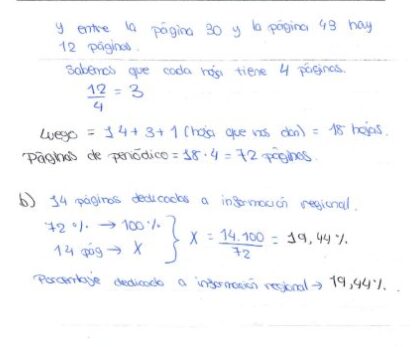 y entre la página 30 y la página 43 hay
12 páginas.
Sabemos que cada hoja tiene 4 páginas.
12/4 = 3
Luego = 14 + 3 + 1 (hoja que nos dan) = 18 hojas.
Páginas de periódico = 18 · 4 = 72 páginas.
b) 14 páginas dedicadas a información regional.
72 % → 100 %
14 pág → X
X = 14.100/72 = 19,44 %.
Porcentaje dedicado a información regional → 19,44 %.